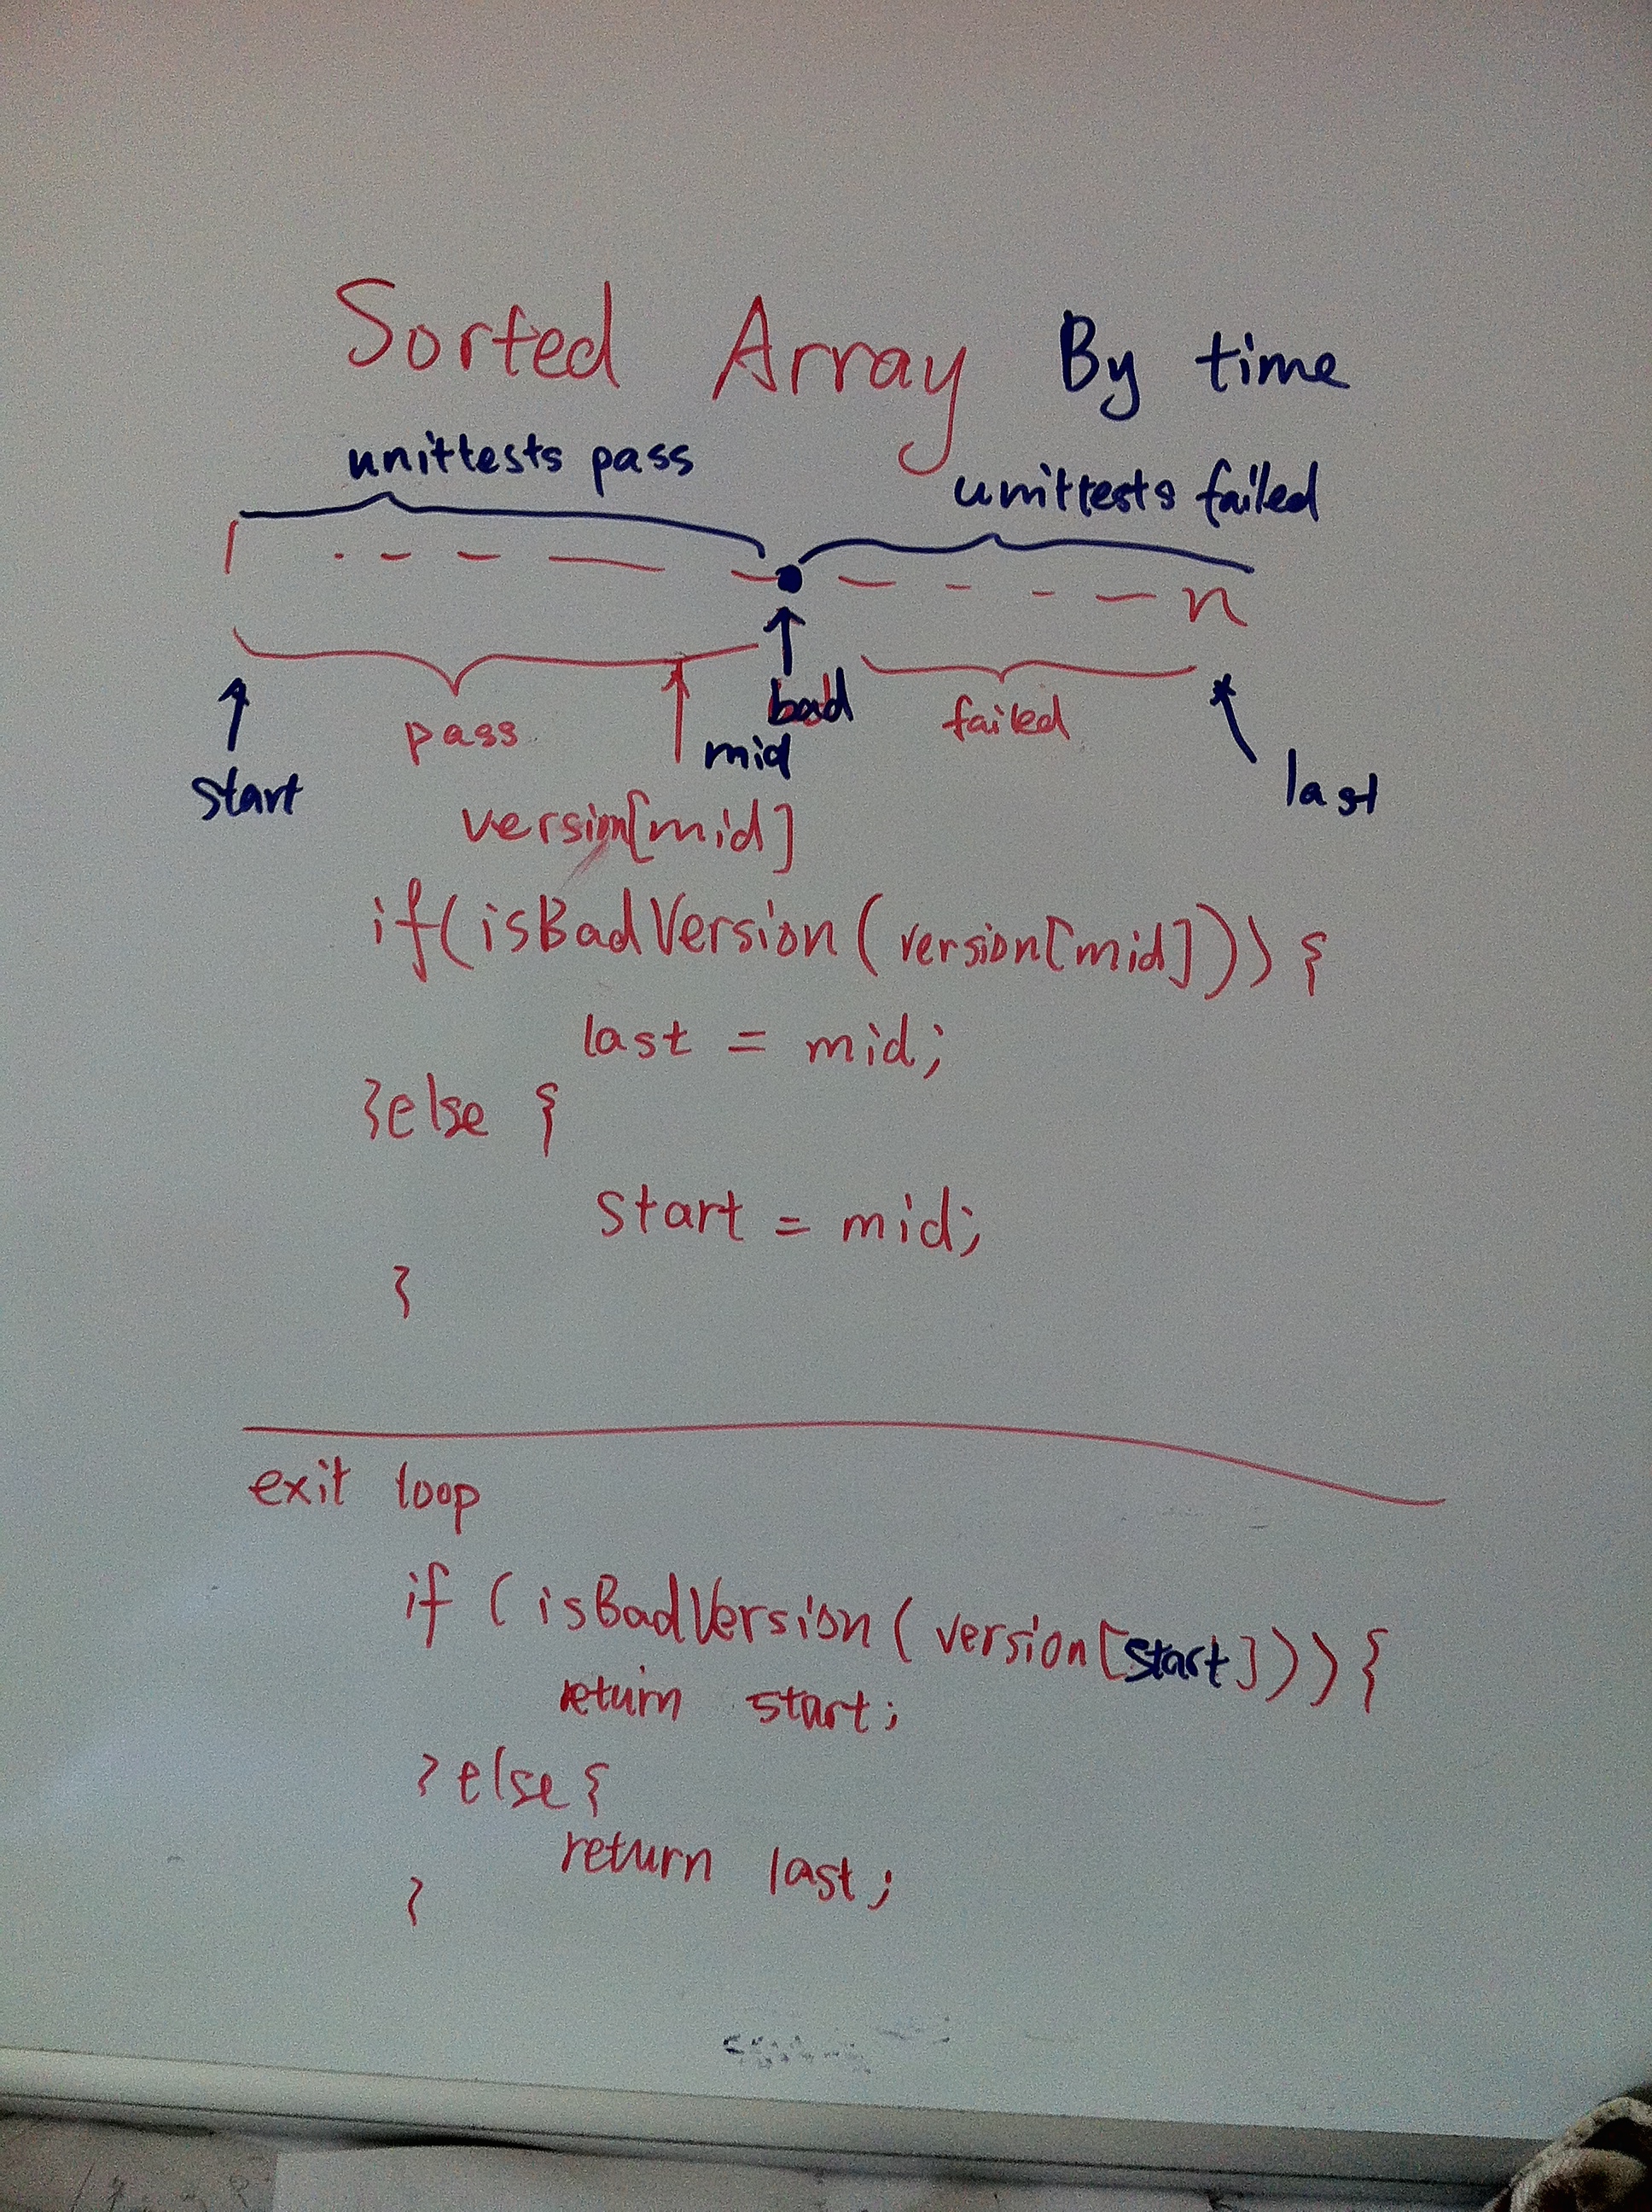 Sorted Array By time
unittests pass
unittests failed
1 . - - - - - - - - n
bad
pass
failed
mid
start
last
version[mid]
if(isBadVersion(version[mid])) {
last = mid;
}else {
start = mid;
}
exit loop
if (isBadVersion(version[start])) {
return start;
}else{
return last;
}